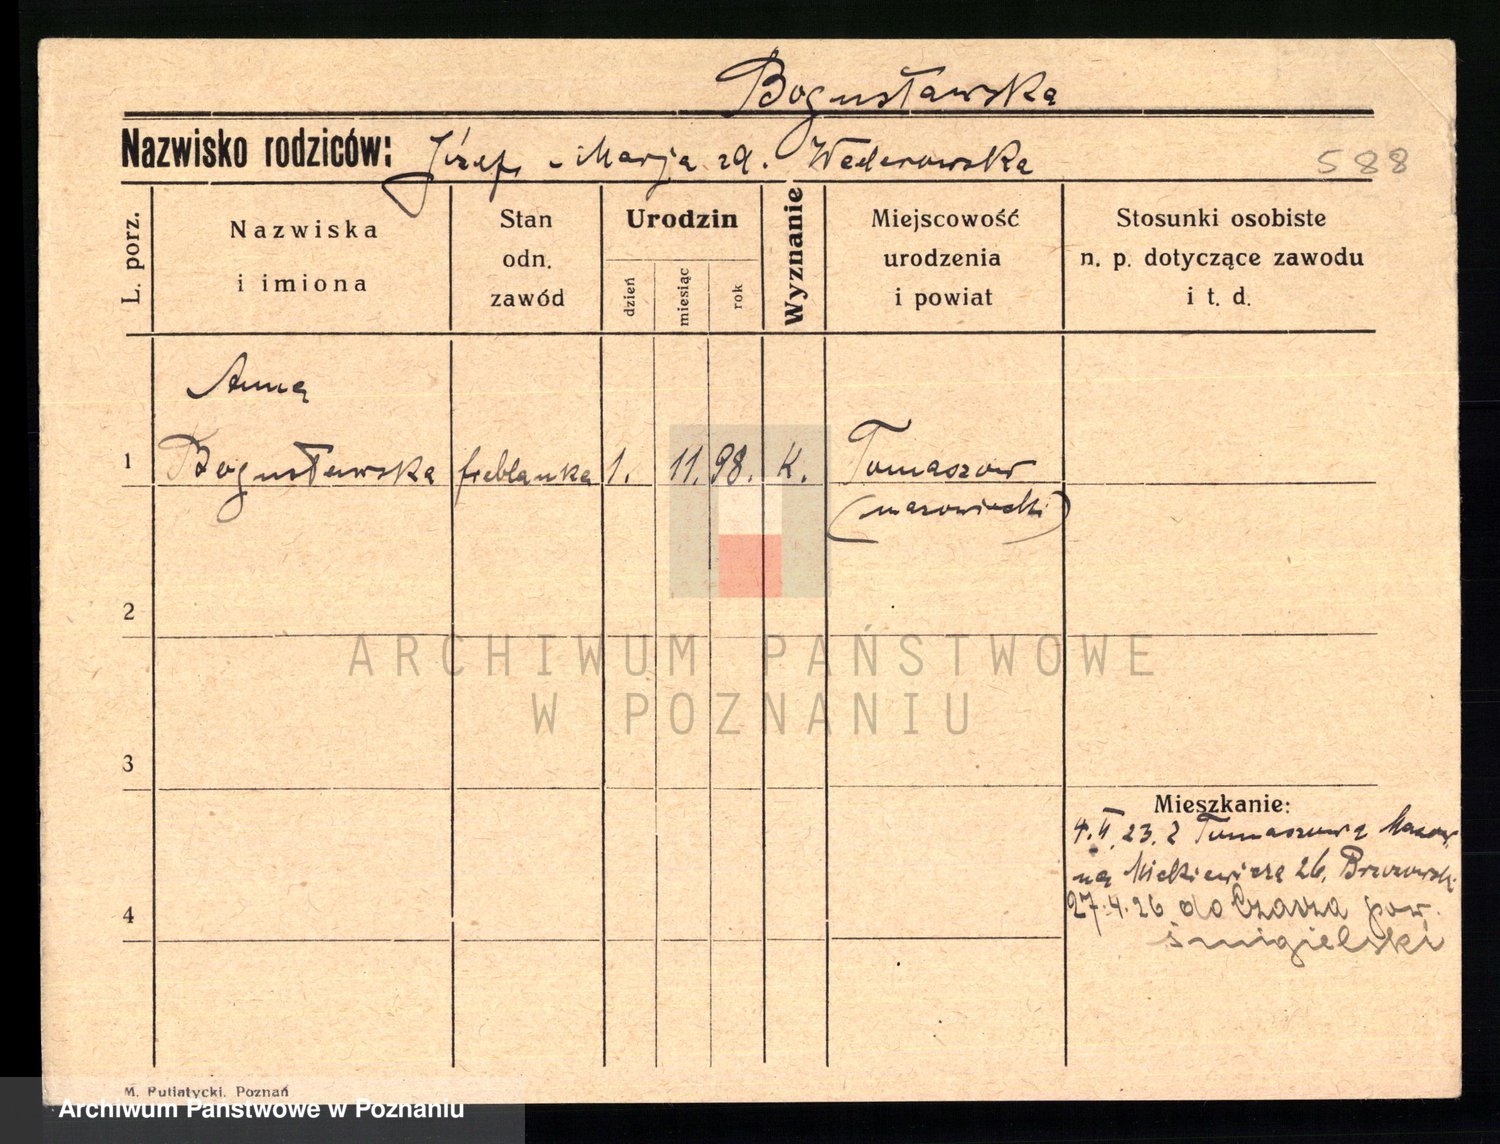 Bogusławska
Nazwisko rodziców: Józef - Marja zd. Wederowska
588
L. porz.
Nazwiska
i imiona
Stan
odn.
zawód
Urodzin
dzień
miesiąc
rok
Wyznanie
Miejscowość
urodzenia
i powiat
Stosunki osobiste
n. p. dotyczące zawodu
i t. d.
Anna
1 Bogusławska freblanka 1. 11. 98. K. Tomaszow
(mazowiecki)
2
3
4
Mieszkanie:
4. II. 23. z Tomaszowa Mazow.
na Mickiewicza 26, Brzozowski
27.4.26 do Czacza pow.
śmigielski
ARCHIWUM PAŃSTWOWE
W POZNANIU
M. Putiatycki, Poznań
Archiwum Państwowe w Poznaniu